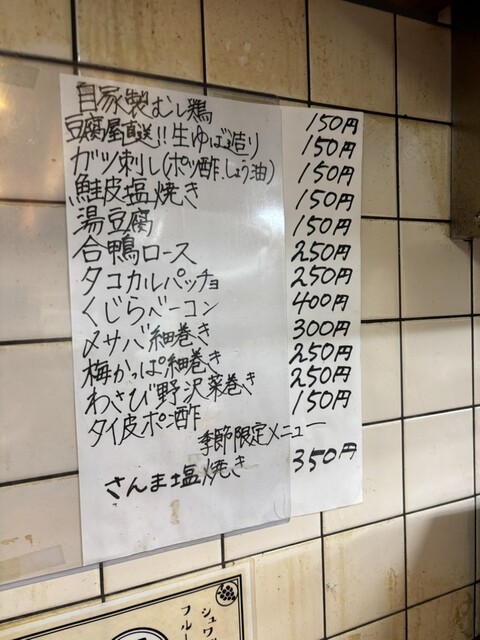 自家製むし鶏 150円
豆腐屋直送!!生ゆば造り 150円
ガツ刺し(ポン酢.しょう油) 150円
鮭皮塩焼き 150円
湯豆腐 150円
合鴨ロース 250円
タコカルパッチョ 250円
くじらベーコン 400円
〆サバ細巻き 300円
梅かっぱ細巻き 250円
わさび野沢菜巻き 250円
タイ皮ポン酢 150円
季節限定メニュー
さんま塩焼き 350円
シュワ
フルー